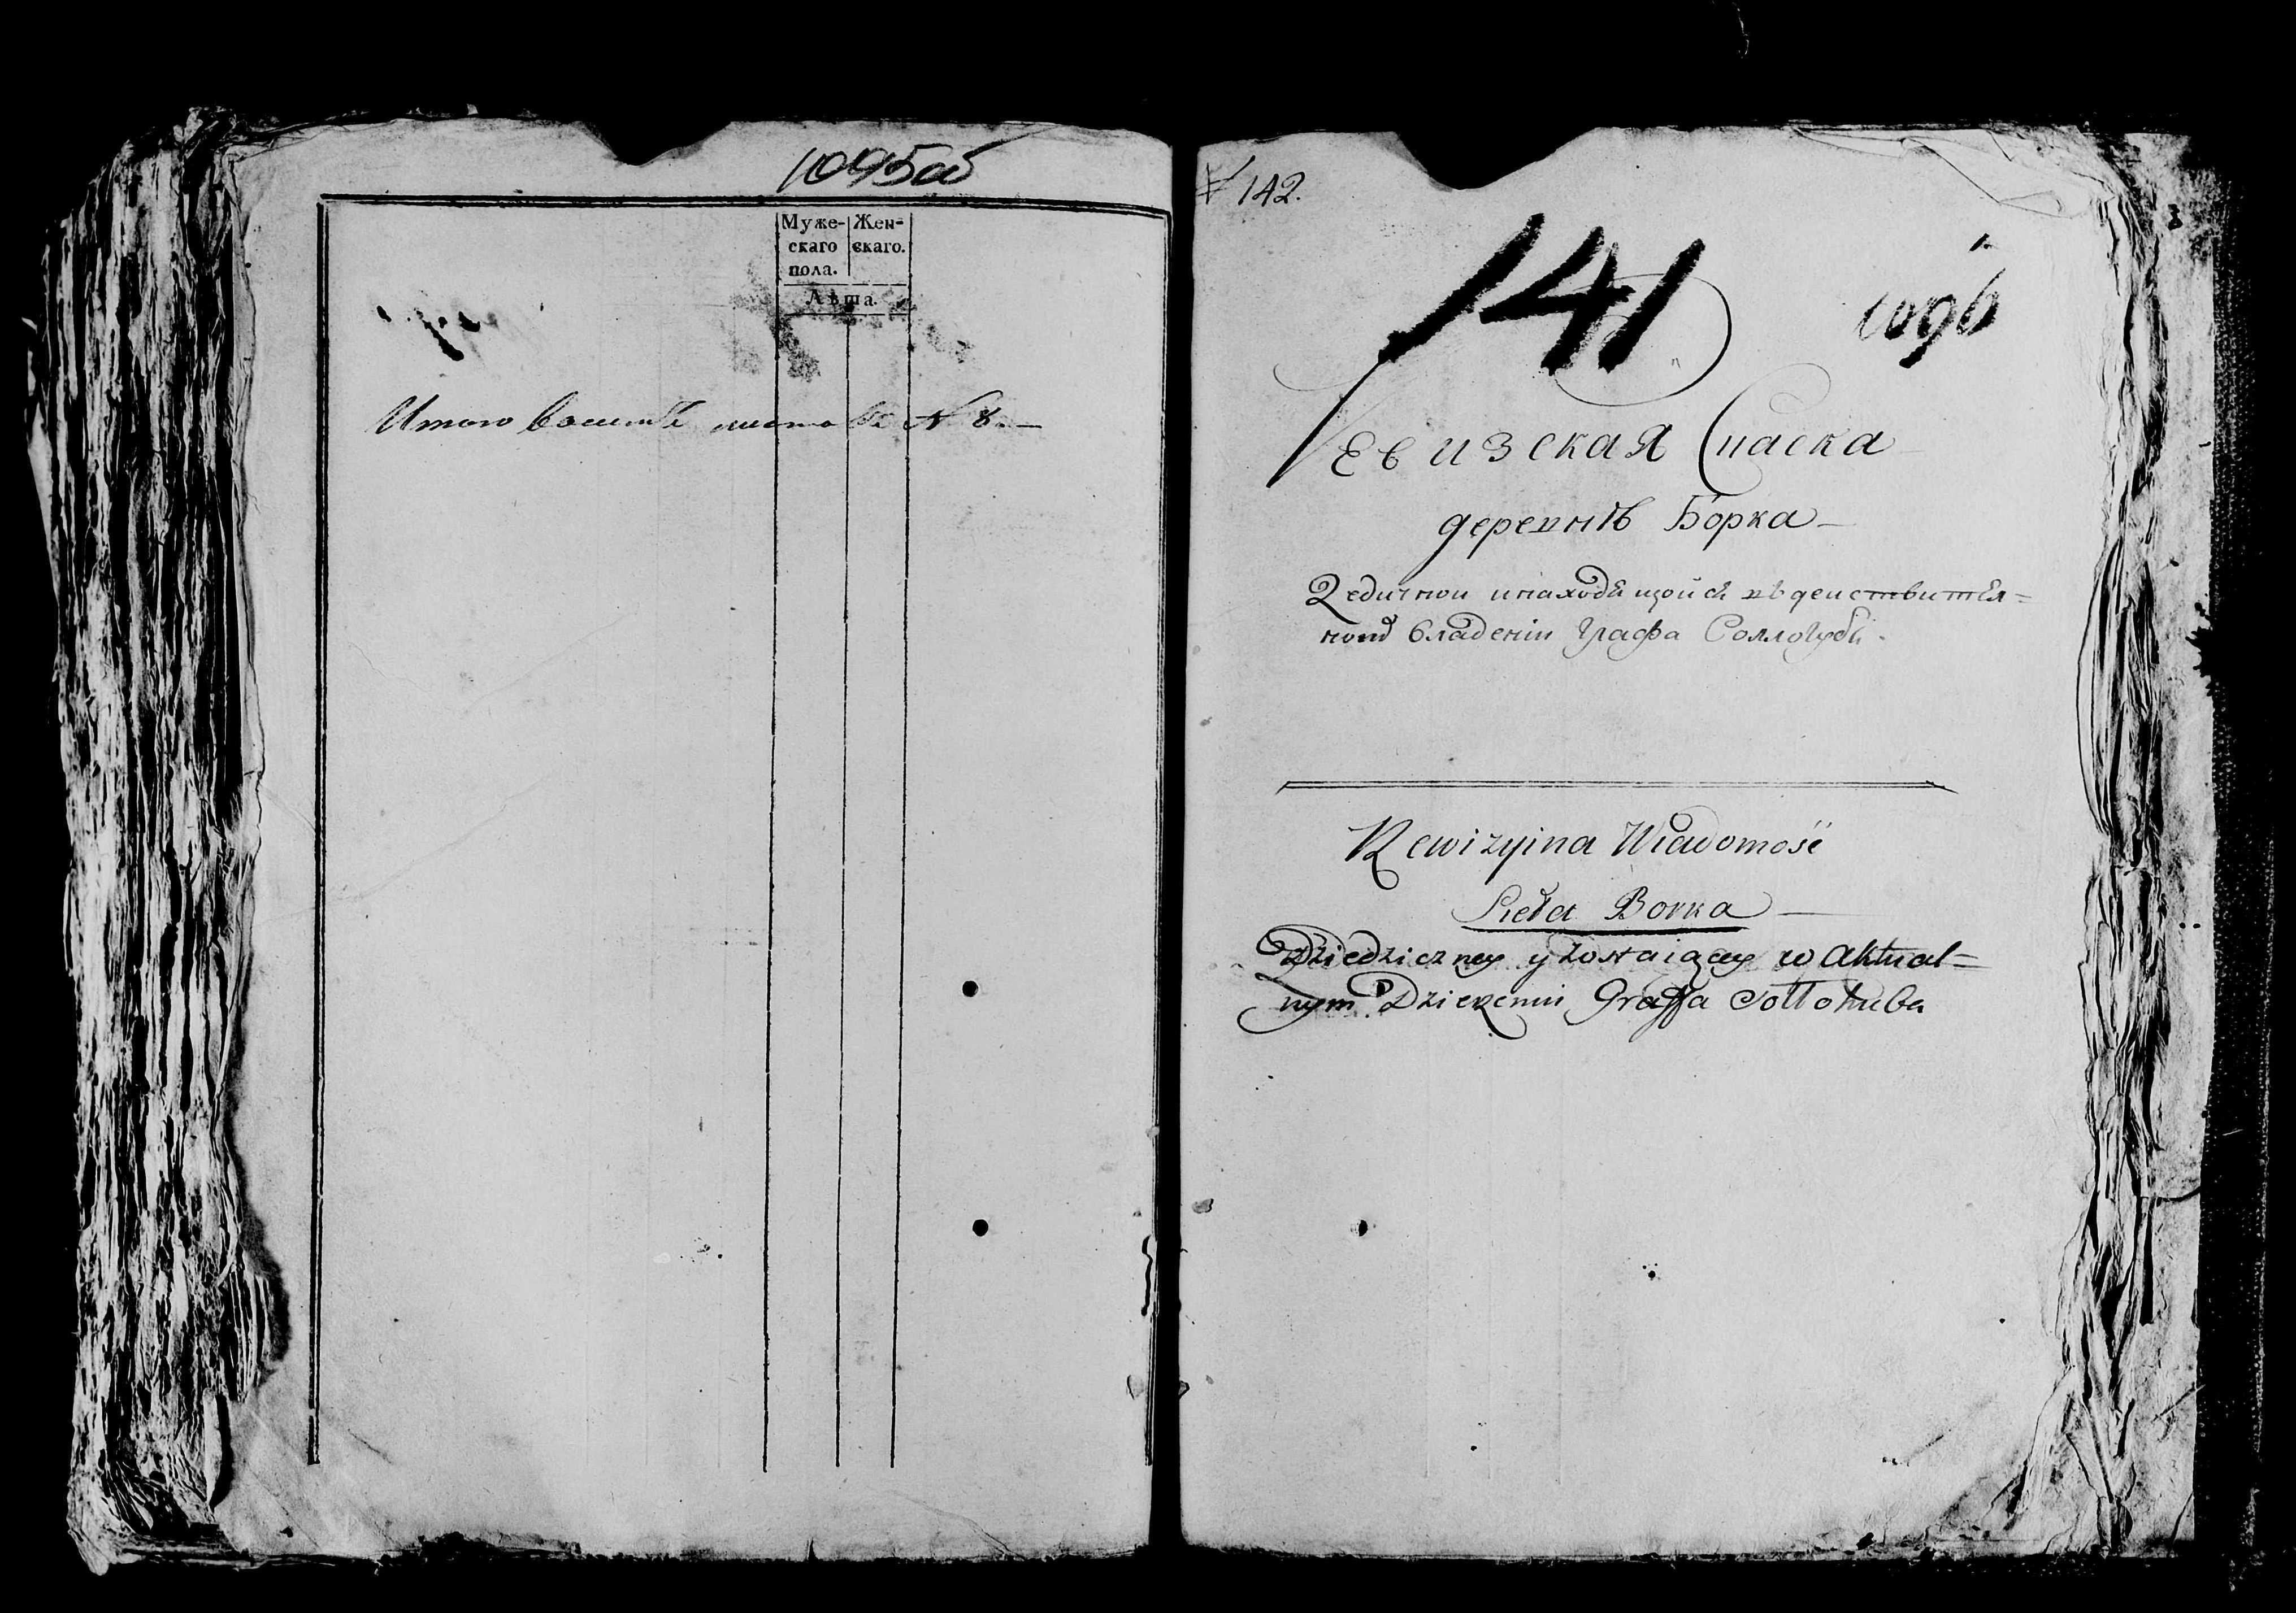 1095об
Муже- Жен-
скаго скаго.
пола.
Лѣта.
Итого восемь листовъ N 8.—
№ 142.
141
1096
Ревизская Скаска
деревнѣ Борка—
Дедичнои инаходящойся въ деиствител=
номъ владеніи Графа Соллогуба.
Rewizyina Wiadomość
Sieła Borka—
Dziedziczney y zostaiącey w Aktual=
nym Dzierżeniu Graffa Sołłohuba